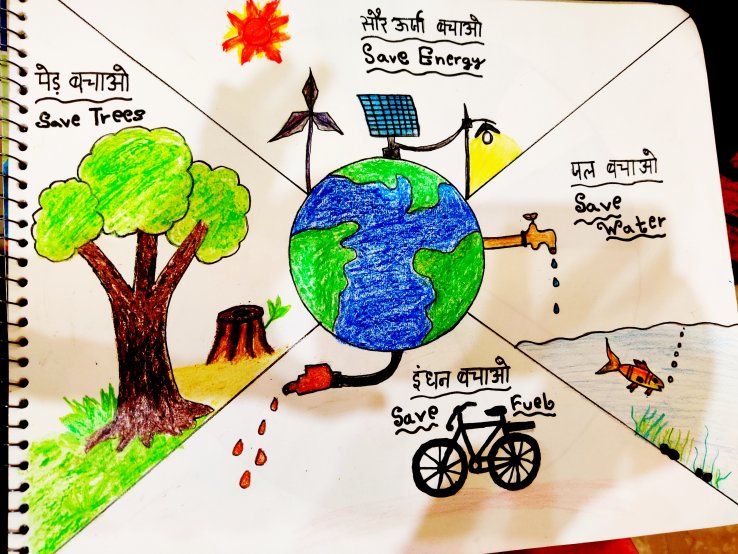 सौर ऊर्जा बचाओ
Save Energy
पेड़ बचाओ
Save Trees
पल बचाओ
Save
Water
इंधन बचाओ
Save Fuel